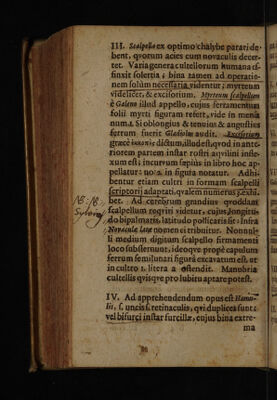 III. Scalpella ex optimo chalybe parari de-
bent, qvorum acies cum novaculis decer-
tet. Varia genera cultellorum humana ef-
finxit solertia; bina tamen ad operatio-
nem solùm necessaria videntur; myrteum
videlicet, & excisorium. Myrteum scalpellum
è Galeno illud appello, cujus ferramentum
folii myrti figuram refert, vide in mensâ
num. 1. Si oblongius & tenuius & angustius
ferrum fuerit Gladiolus audit. Excisorium
græcè dictum, illud est, qvod in ante-
riorem partem instar rostri aqvilini infle-
xum est; incurvum sæpius in libro hoc ap-
pellatur: no 2. in figura notatur. Adhi-
bentur etiam cultri in formam scalpelli
scriptorij adaptati, qvalem numerus exhi-
bet. Ad cerebrum grandius qvoddam
scalpellum reqviri videtur, cujus longitu-
do bipalmaris, latitudo pollicaris sit: Infrà
Novaculæ latæ nomen ei tribuitur. Nonnul-
li medium digitum scalpello firmamenti
loco substernunt, ideoqve propè capulum
ferrum semilunari figurâ excavatum est, ut
in cultro literâ ostendit. Manubria
cultellis qvisqve pro lubitu aptare potest.
IV. Ad apprehendendum opus est Hamu-
lis, s. uncis s. retinaculis, qvi duplices sunt:
vel bisurci instar furcillæ, cujus bina extre-
ma